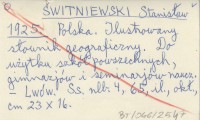 ŚWITNIEWSKI Stanisław
1925: Polska. Ilustrowany
słownik geograficzny. Do
użytku szkół powszechnych,
gimnazjów i seminarjów naucz.
Lwów. Ss. nlb. 4, 65, il., okł.,
cm 23 x 16.